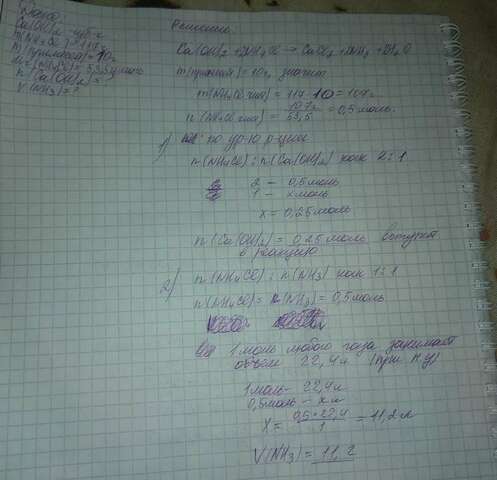 Дано:
Ca(OH)2
m(NH4Cl) = 117
m(примесей) = 10г
n(Ca(OH)2) = ?
V(NH3) = ?
Решение:
Ca(OH)2 + 2NH4Cl → CaCl2 + 2NH3 + 2H2O
m(примесей) = 10г, значит
m(NH4Cl чист) = 117 - 10 = 107г
n(NH4Cl чист) = 107г / 53,5 = 0,5 моль.
1) по ур-ю р-ции
n(NH4Cl) : n(Ca(OH)2) как 2 : 1
2 - 0,5 моль
1 - x моль
x = 0,25 моль
n(Ca(OH)2) = 0,25 моль вступает
в реакцию
2) n(NH4Cl) : n(NH3) как 1 : 1
n(NH4Cl) = n(NH3) = 0,5 моль
1 моль любого газа занимает
объём 22,4 л (при н.у)
1 моль - 22,4 л
0,5 моль - x л
x = 0,5 * 22,4 / 1 = 11,2 л
V(NH3) = 11,2